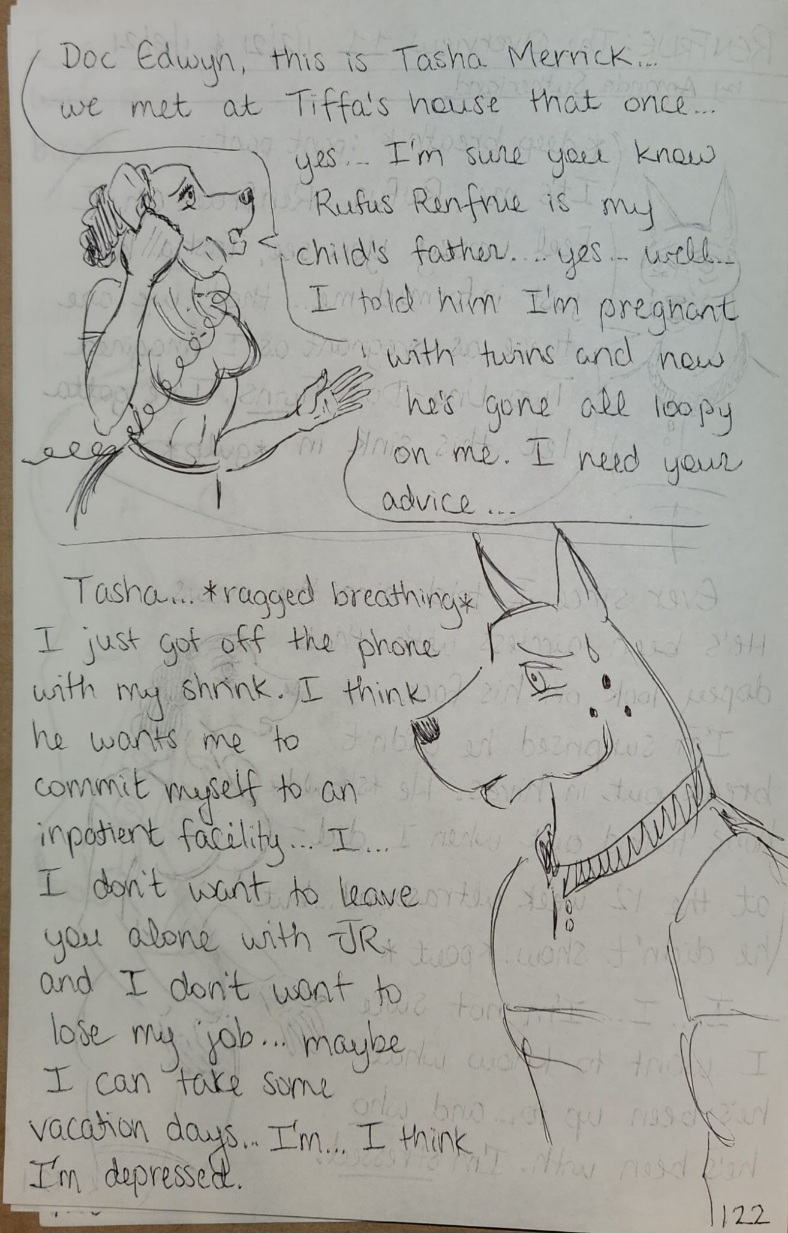 Doc Edwyn, this is Tasha Merrick...
we met at Tiffa's house that once...
yes... I'm sure you know
Rufus Renfrue is my
child's father.... yes... well...
I told him I'm pregnant
with twins and now
he's gone all loopy
on me. I need your
advice...
Tasha... *ragged breathing*
I just got off the phone
with my shrink. I think
he wants me to
commit myself to an
inpatient facility... I...
I don't want to leave
you alone with JR
and I don't want to
lose my job... maybe
I can take some
vacation days... I'm... I think
I'm depressed.
122